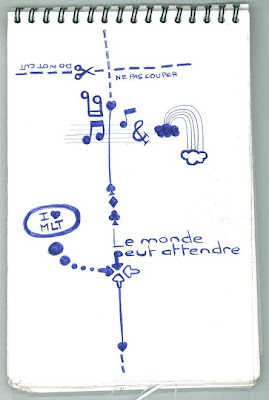 DO NOT CUT
NE PAS COUPER
&
Le monde
peut attendre
I ♥
MLT